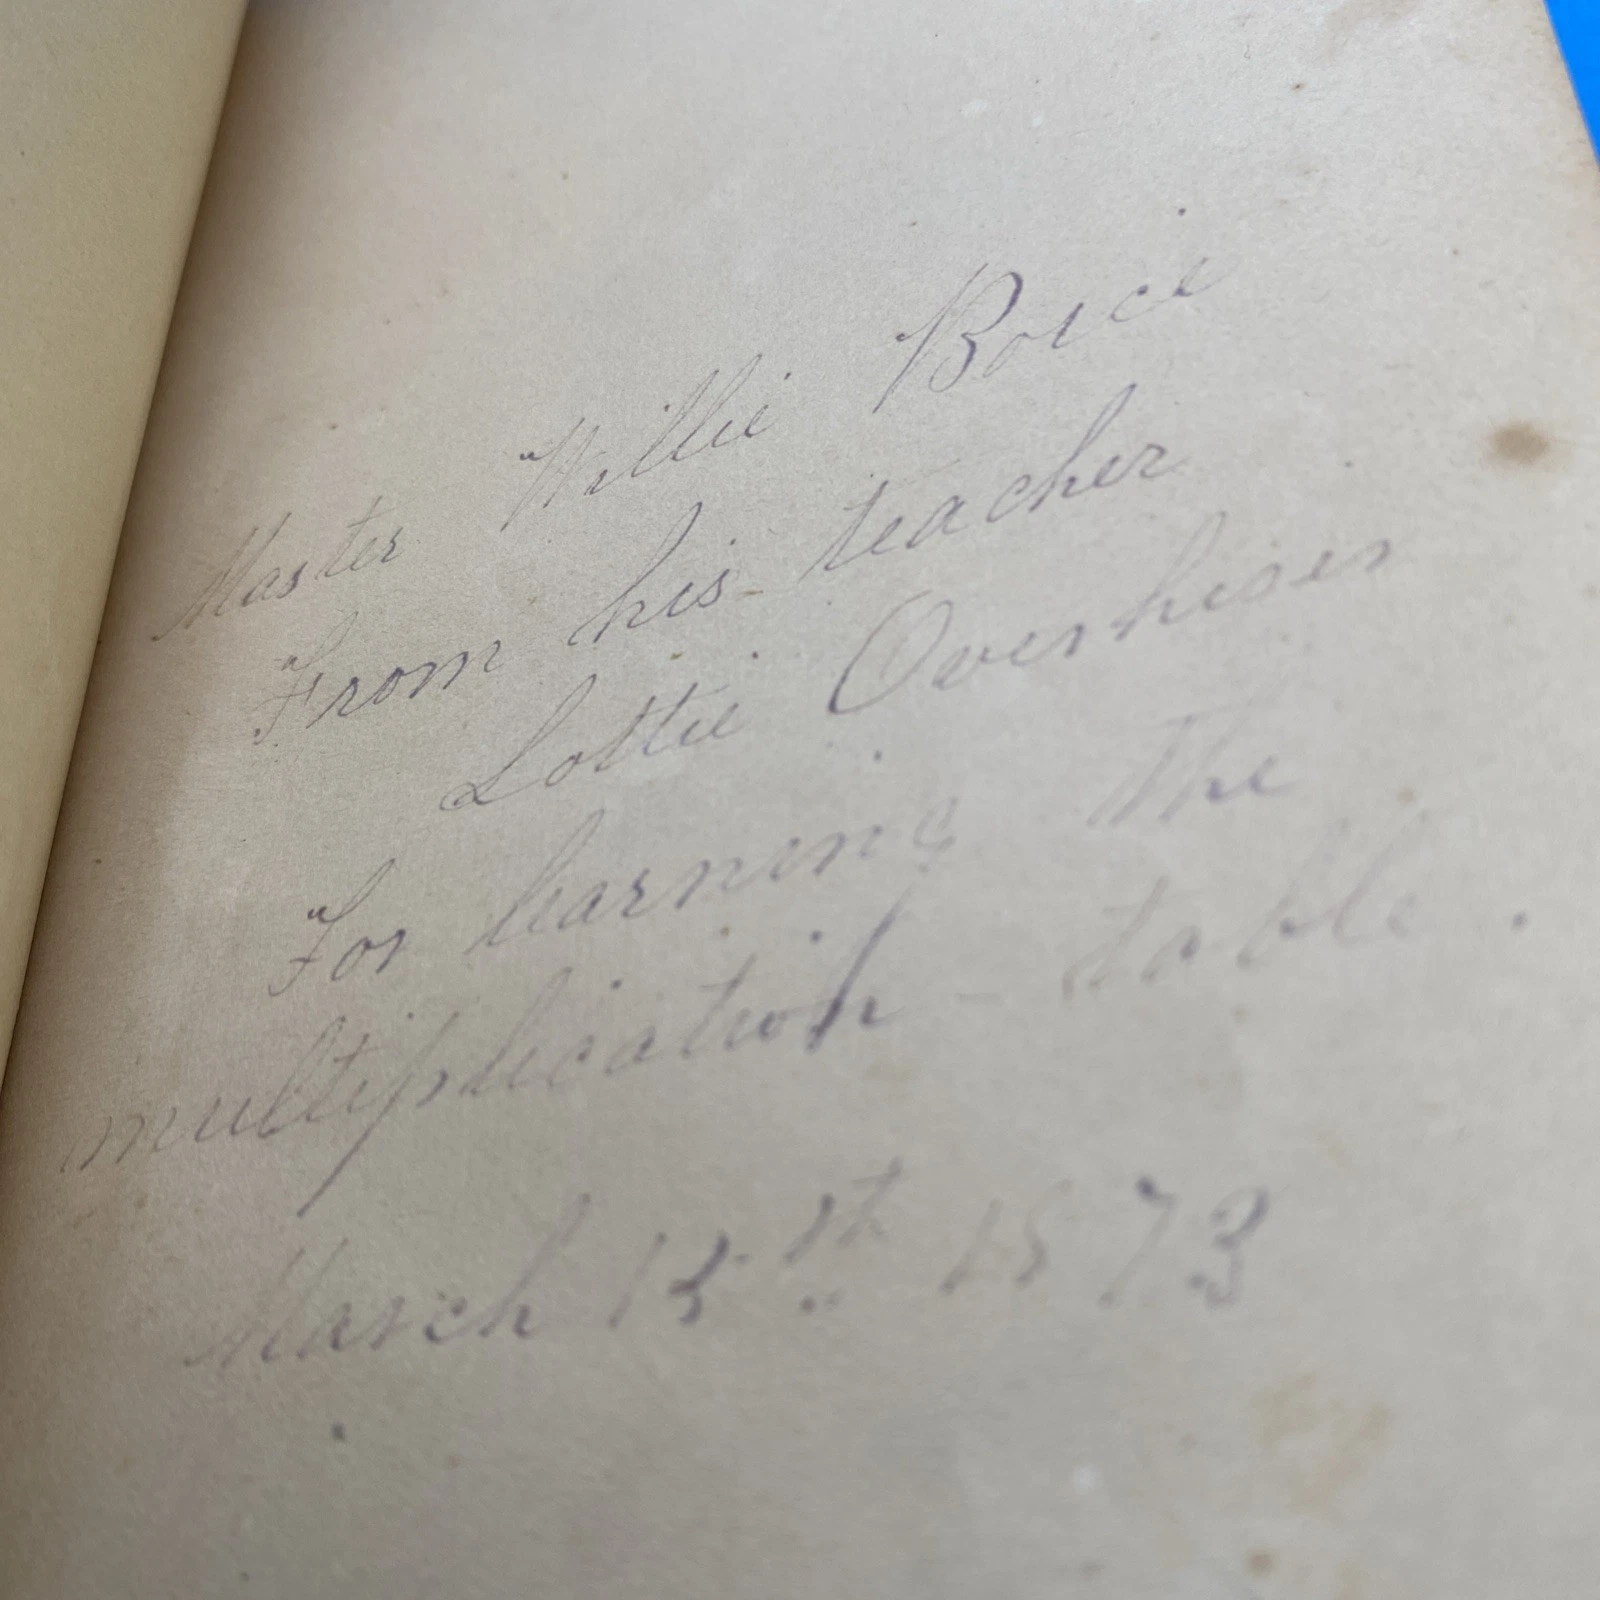 Master Willie Boice
From his teacher
Lottie Overhiser
For learning the
multiplication - table.
March 15th 1873